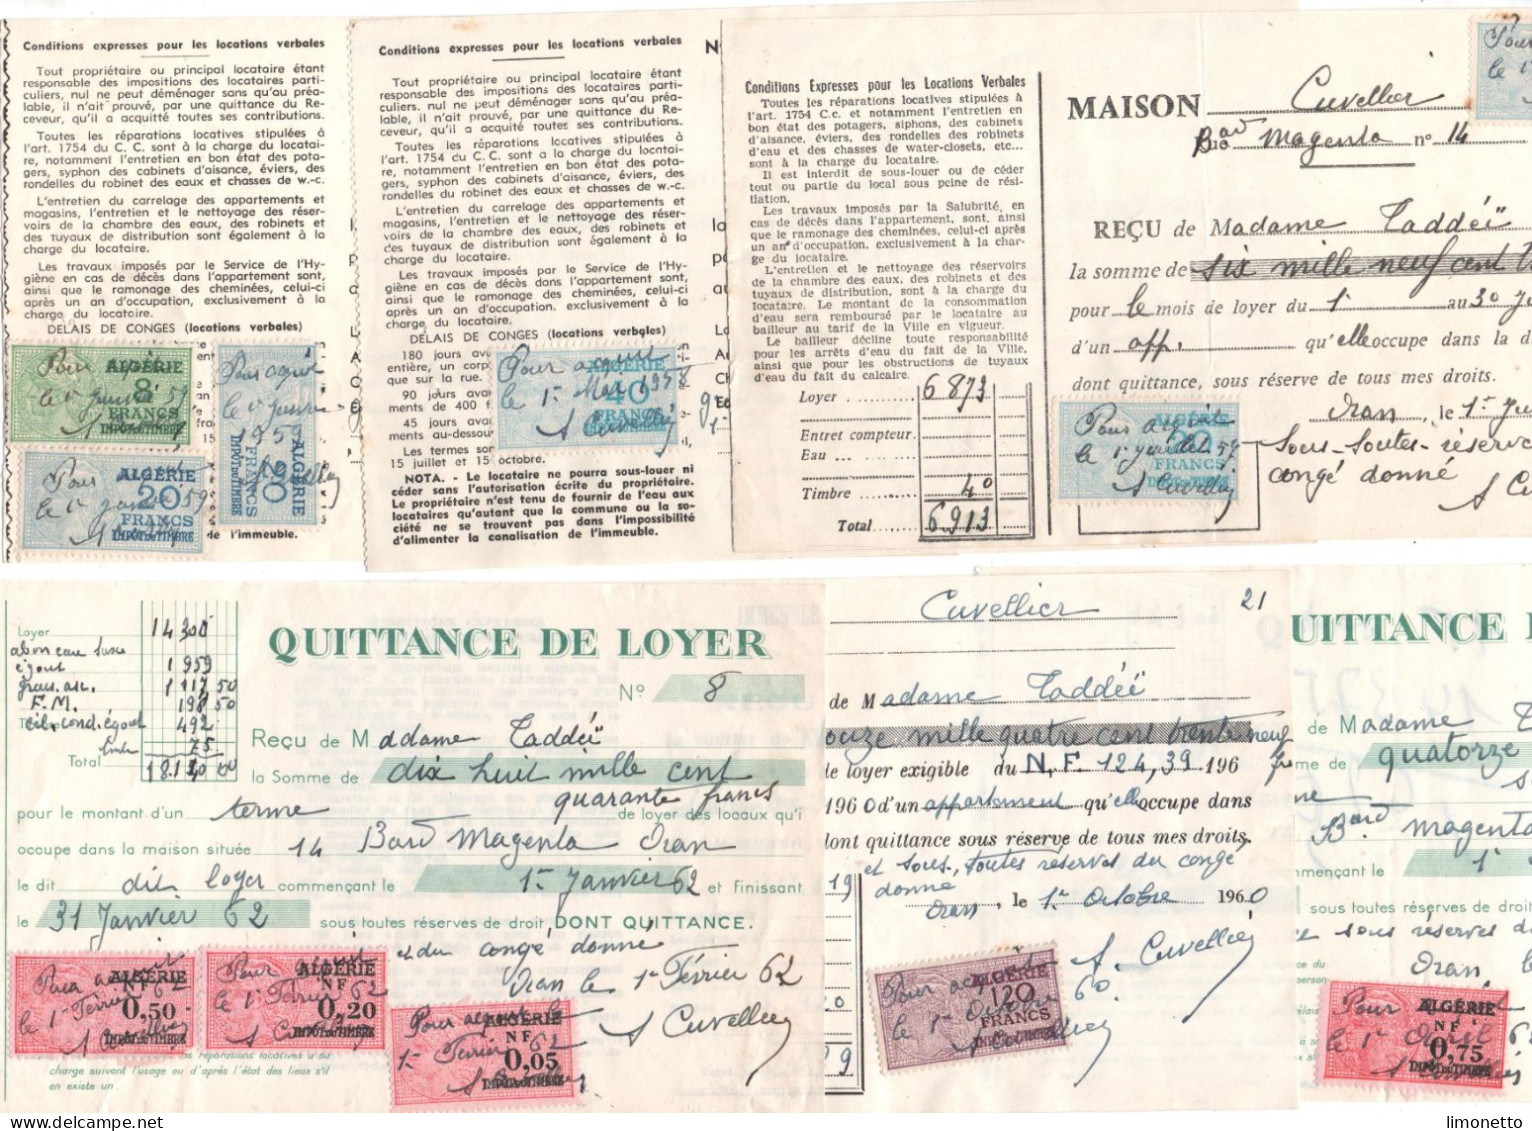 Conditions expresses pour les locations verbales
Tout propriétaire ou principal locataire étant
responsable des impositions des locataires parti-
culiers, nul ne peut déménager sans qu'au préa-
lable, il n'ait prouvé, par une quittance du Re-
ceveur, qu'il a acquitté toutes ses contributions.
Toutes les réparations locatives stipulées à
l'art. 1754 du C. C. sont à la charge du locatai-
re, notamment l'entretien en bon état des pota-
gers, syphon des cabinets d'aisance, éviers, des
rondelles du robinet des eaux et chasses de w.-c.
L'entretien du carrelage des appartements et
magasins, l'entretien et le nettoyage des réser-
voirs de la chambre des eaux, des robinets et
des tuyaux de distribution sont également à la
charge du locataire.
Les travaux imposés par le Service de l'Hy-
giène en cas de décès dans l'appartement sont,
ainsi que le ramonage des cheminées, celui-ci
après un an d'occupation, exclusivement à la
charge du locataire.
DELAIS DE CONGES (locations verbales)
ALGÉRIE
8
FRANCS
IMPÔT DU TIMBRE
Pour acquit
le 1r janvier 59
ALGÉRIE
20
FRANCS
IMPÔT DU TIMBRE
ALGÉRIE
20
FRANCS
IMPÔT DU TIMBRE
de l'immeuble.
Conditions expresses pour les locations verbales
Tout propriétaire ou principal locataire étant
responsable des impositions des locataires parti-
culiers. nul ne peut déménager sans qu'au préa-
lable, il n'ait prouvé, par une quittance du Re-
ceveur, qu'il a acquitté toutes ses contributions.
Toutes les réparations locatives stipulées à
l'art. 1754 du C. C. sont à la charge du locatai-
re, notamment l'entretien en bon état des pota-
gers, syphon des cabinets d'aisance, éviers, des
rondelles du robinet des eaux et chasses de w.-c.
L'entretien du carrelage des appartements et
magasins, l'entretien et le nettoyage des réser-
voirs de la chambre des eaux, des robinets et
des tuyaux de distribution sont également à la
charge du locataire.
Les travaux imposés par le Service de l'Hy-
giène en cas de décès dans l'appartement sont,
ainsi que le ramonage des cheminées, celui-ci
après un an d'occupation. exclusivement à la
charge du locataire.
DÉLAIS DE CONGES (locations verbales)
180 jours
entière, un corp
que sur la rue.
90 jours
ments de 400 f
45 jours
au-dessou
Les termes
15 juillet et 15 octobre.
Pour acquit
le 1r Mai 1958
A Cuvellier
ALGÉRIE
40
FRANCS
NOTA. - Le locataire ne pourra sous-louer ni
céder sans l'autorisation écrite du propriétaire.
Le propriétaire n'est tenu de fournir de l'eau aux
locataires qu'autant que la commune ou la so-
ciété ne se trouvent pas dans l'impossibilité
d'alimenter la canalisation de l'immeuble.
Conditions Expresses pour les Locations Verbales
Toutes les réparations locatives stipulées à
l'art. 1754 C.c. et notamment l'entretien en
bon état des potagers, siphons, des cabinets
d'aisance, éviers, des rondelles des robinets
d'eau et des chasses de water-closets, etc...
sont à la charge du locataire.
Il est interdit de sous-louer ou de céder
tout ou partie du local sous peine de rési-
liation.
Les travaux imposés par la Salubrité, en
cas de décès dans l'appartement, sont, ainsi
que le ramonage des cheminées, celui-ci après
un an d'occupation, exclusivement à la char-
ge du locataire.
L'entretien et le nettoyage des réservoirs
de la chambre des eaux, des robinets et des
tuyaux de distribution, sont à la charge du
locataire. Le montant de la consommation
d'eau sera remboursé par le locataire au
bailleur au tarif de la Ville en vigueur.
Le bailleur décline toute responsabilité
pour les arrêts d'eau du fait de la Ville,
ainsi que pour les obstructions de tuyaux
d'eau du fait du calcaire.
Loyer 6873
Entret compteur.
Eau
Timbre 40
Total 6913
MAISON Cuvellier
Bard Magenta n° 14
REÇU de Madame Taddéï
la somme de six mille neuf cent
pour le mois de loyer du 1r au 30
d'un app. qu'elle occupe dans la
dont quittance, sous réserve de tous mes droits.
Oran, le 1r
Sous toutes réserve
congé donné
A Cuve
Pour acquit
le 1r juillet 57
A Cuvellier
FRANCS
Loyer 14300
abon eau taxe
égout 1959
1117 50
F.M. 198 50
492
Timbre 75
Total 18.140 00
QUITTANCE DE LOYER
N° 8
Reçu de Madame Taddéï
la Somme de dix huit mille cent
quarante francs
pour le montant d'un terme de loyer des locaux qu'i
occupe dans la maison située 14 Bard Magenta Oran
le dit dit loyer commençant le 1r Janvier 62 et finissant
le 31 Janvier 62 sous toutes réserves de droit, DONT QUITTANCE.
et du congé donné
Oran le 1r Février 62
A Cuvellier
Pour acquit
le 1r Février 62
A Cuvellier
ALGÉRIE
NF
0,50
IMPÔT DU TIMBRE
Pour acquit
le 1r Février 62
ALGÉRIE
NF
0,20
IMPÔT DU TIMBRE
Pour acquit le
1r Février 62
ALGÉRIE
NF
0,05
IMPÔT DU TIMBRE
réparations locatives
charge suivant l'usage ou d'après l'état des lieux s'il
en existe un.
Cuvellier 21
de Madame Taddéï
ouze mille quatre cent trente neuf
de loyer exigible du N.F. 124,39 196
1960 d'un appartement qu'elle occupe dans
dont quittance sous réserve de tous mes droits.
et sous toutes réserves du congé
donné
Oran, le 1r Octobre 1960
A Cuvellier
Pour acquit
le 1r Octobre 60
A Cuvellier
ALGÉRIE
120
FRANCS
IMPÔT DU TIMBRE
UITTANCE
de Madame
me de quatorze
Bard magenta
mençant le 1r
sous toutes réserves de droit
sous réserves
Oran le
Pour
le 1r
ALGÉRIE
NF
0,75
IMPÔT DU TIMBRE
limonetto